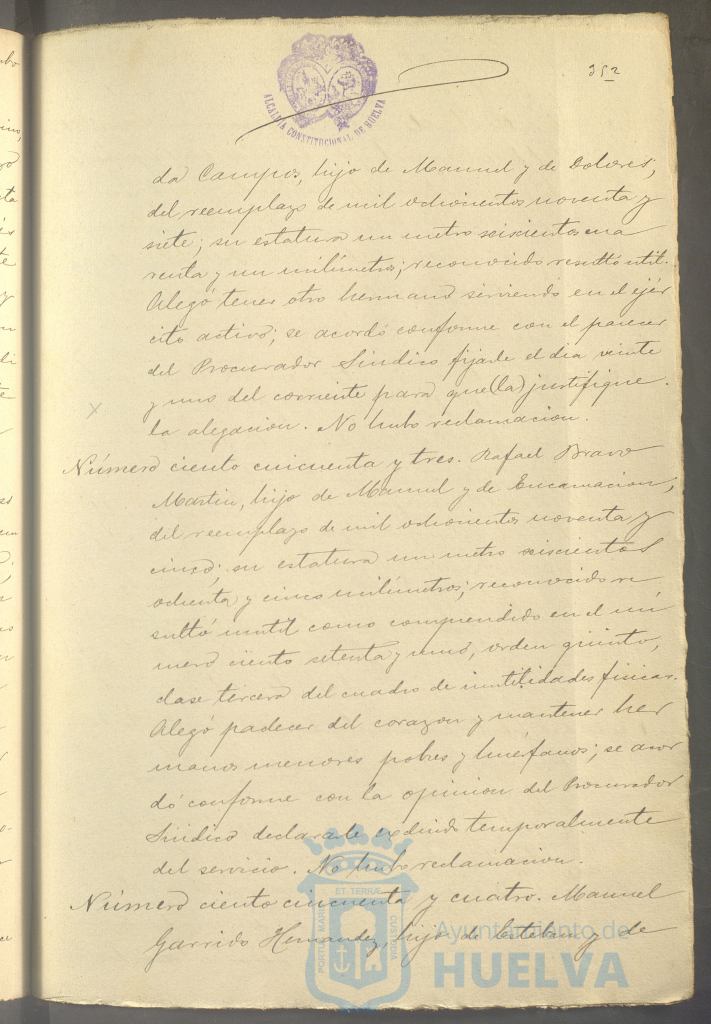 ALCALDIA CONSTITUCIONAL DE HUELVA
352
da Campos, hijo de Manuel y de Dolores;
del reemplazo de mil ochocientos noventa y
siete; su estatura un metro seiscientos cua
renta y un milímetros; reconocido resultó util.
Alegó tener otro hermano sirviendo en el ejér
cito activo; se acordó conforme con el parecer
del Procurador Sindico fijarle el dia veinte
y uno del corriente para que (la) justifique
la alegacion. No hubo reclamacion.
Número ciento cincuenta y tres. Rafael Bravo
Martin, hijo de Manuel y de Encarnacion;
del reemplazo de mil ochocientos noventa y
cinco; su estatura un metro seiscientos
ochenta y cinco milímetros; reconocido re
sultó inutil como comprendido en el nú
mero ciento setenta y uno, orden quinto,
clase tercera del cuadro de inutilidades fisicas.
Alegó padecer del corazon y mantener her
manos menores pobres y huérfanos; se acor
dó conforme con la opinion del Procurador
Sindico declararle excluido temporalmente
del servicio. No hubo reclamacion.
Número ciento cincuenta y cuatro. Manuel
Garrido Hernandez, hijo de Esteban y de
PORTUS MARIS ET TERRAE CUSTODIA
Ayuntamiento de
HUELVA